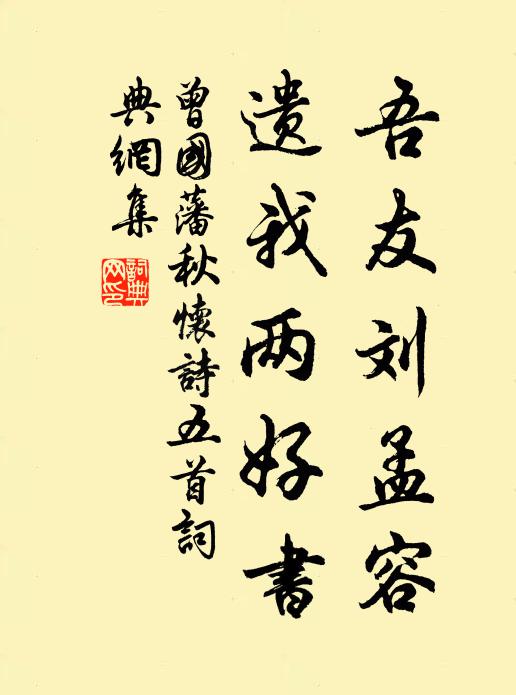 吾友刘孟容
遗我两好書
曾國藩秋懷詩五首詞
典網集
詞典
网印